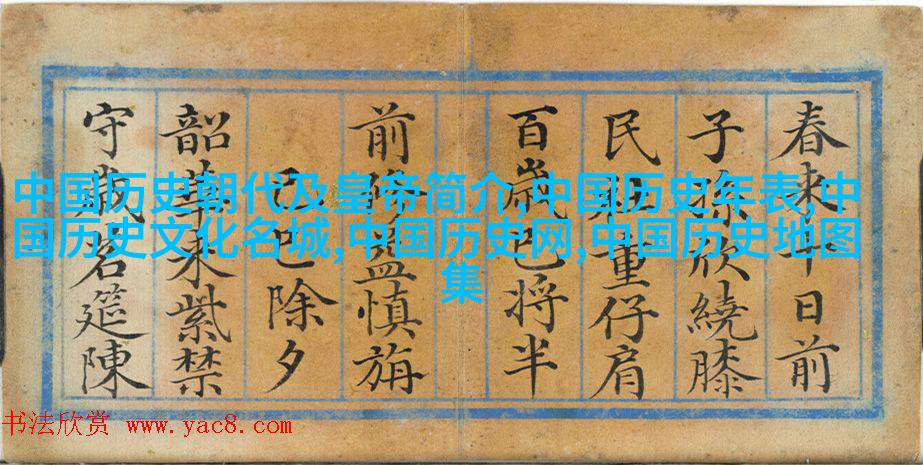 春來十日前
子孫欣繞膝
民社重仔肩
百歲已將半
前脩益慎旃
己巳除夕
韶華来紫禁
守歲茗筵陳
中国历史朝代及皇帝简介,中国历史年表,中
国历史文化名城,中国历史网,中国历史地图
集
书法欣赏 www.yac8.com